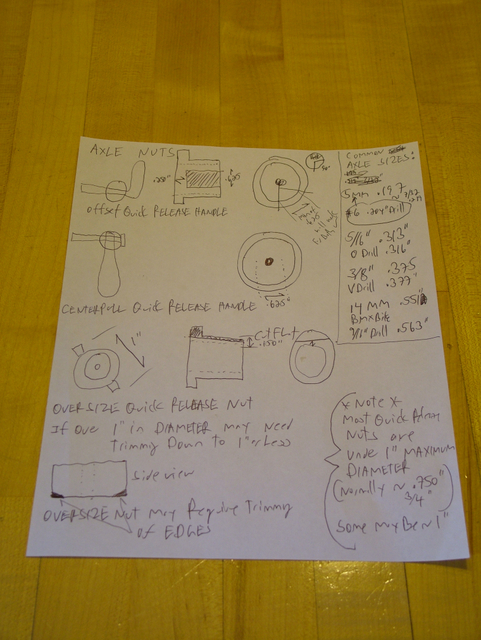 AXLE NUTS
offset Quick RELEASE HANDLE
CENTERPULL Quick RELEASE HANDLE
.625"
1"
Cut Flat
.150"
OVERSIZE Quick RELEASE Nut
If Over 1" in DIAMETER May Need
Trimming Down to 1" or Less
Side view
OVERSIZE Nut May Require Trimming
of EDGES
COMMON
AXLE SIZES:
5mm .197
#6 .204" Drill
5/16" .313"
O Drill .316"
3/8" .375
V Drill .377"
14 MM .551"
BMX Bike
9/16" Drill .563"
* Note *
Most Quick Release
Nuts are
under 1" MAXIMUM
DIAMETER
(Normally ~ .750"
3/4"
Some May Be ~ 1"